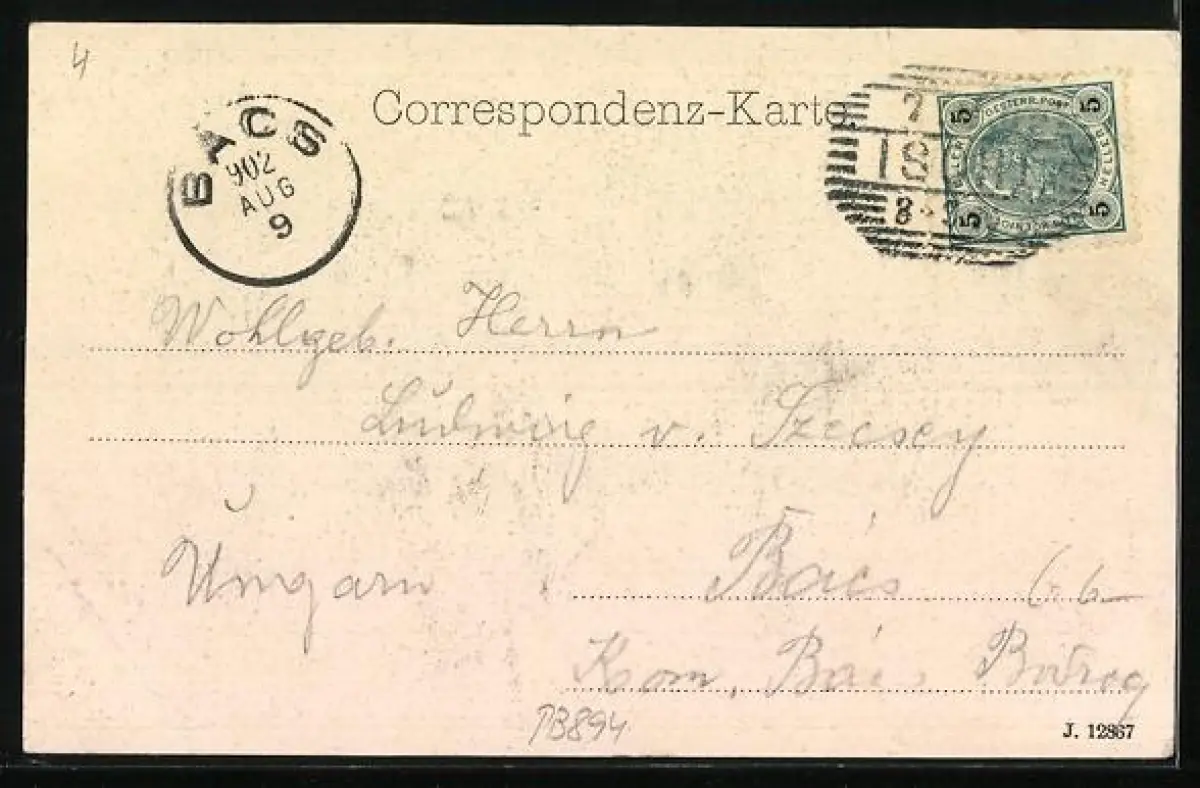 4
Correspondenz-Karte.
BACS
902
AUG
9
7
ISCHL
8
5 OESTERR. POST 5
HELLER HELLER
5 5
Wohlgeb. Herrn
Ludwig v. Szecsey
Ungarn Bács
Kom. Bács Bodrog
PB894
J. 12867